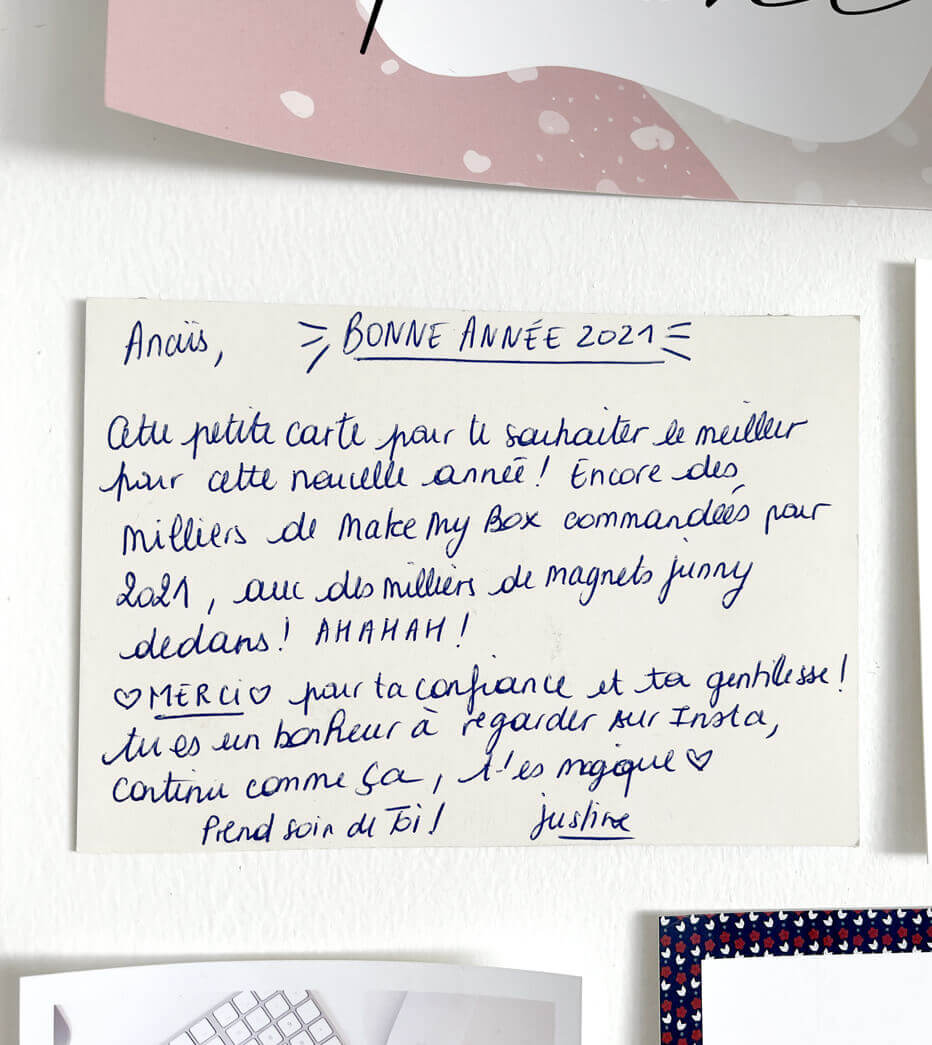 Anaïs, BONNE ANNÉE 2021
Cette petite carte pour te souhaiter le meilleur
pour cette nouvelle année ! Encore des
milliers de Make My Box commandées pour
2021, avec des milliers de magnets junny
dedans ! AHAHAH !
♡MERCI♡ pour ta confiance et ta gentillesse !
tu es un bonheur à regarder sur Insta,
continu comme ça, t'es magique ♡
Prend soin de Toi ! justine